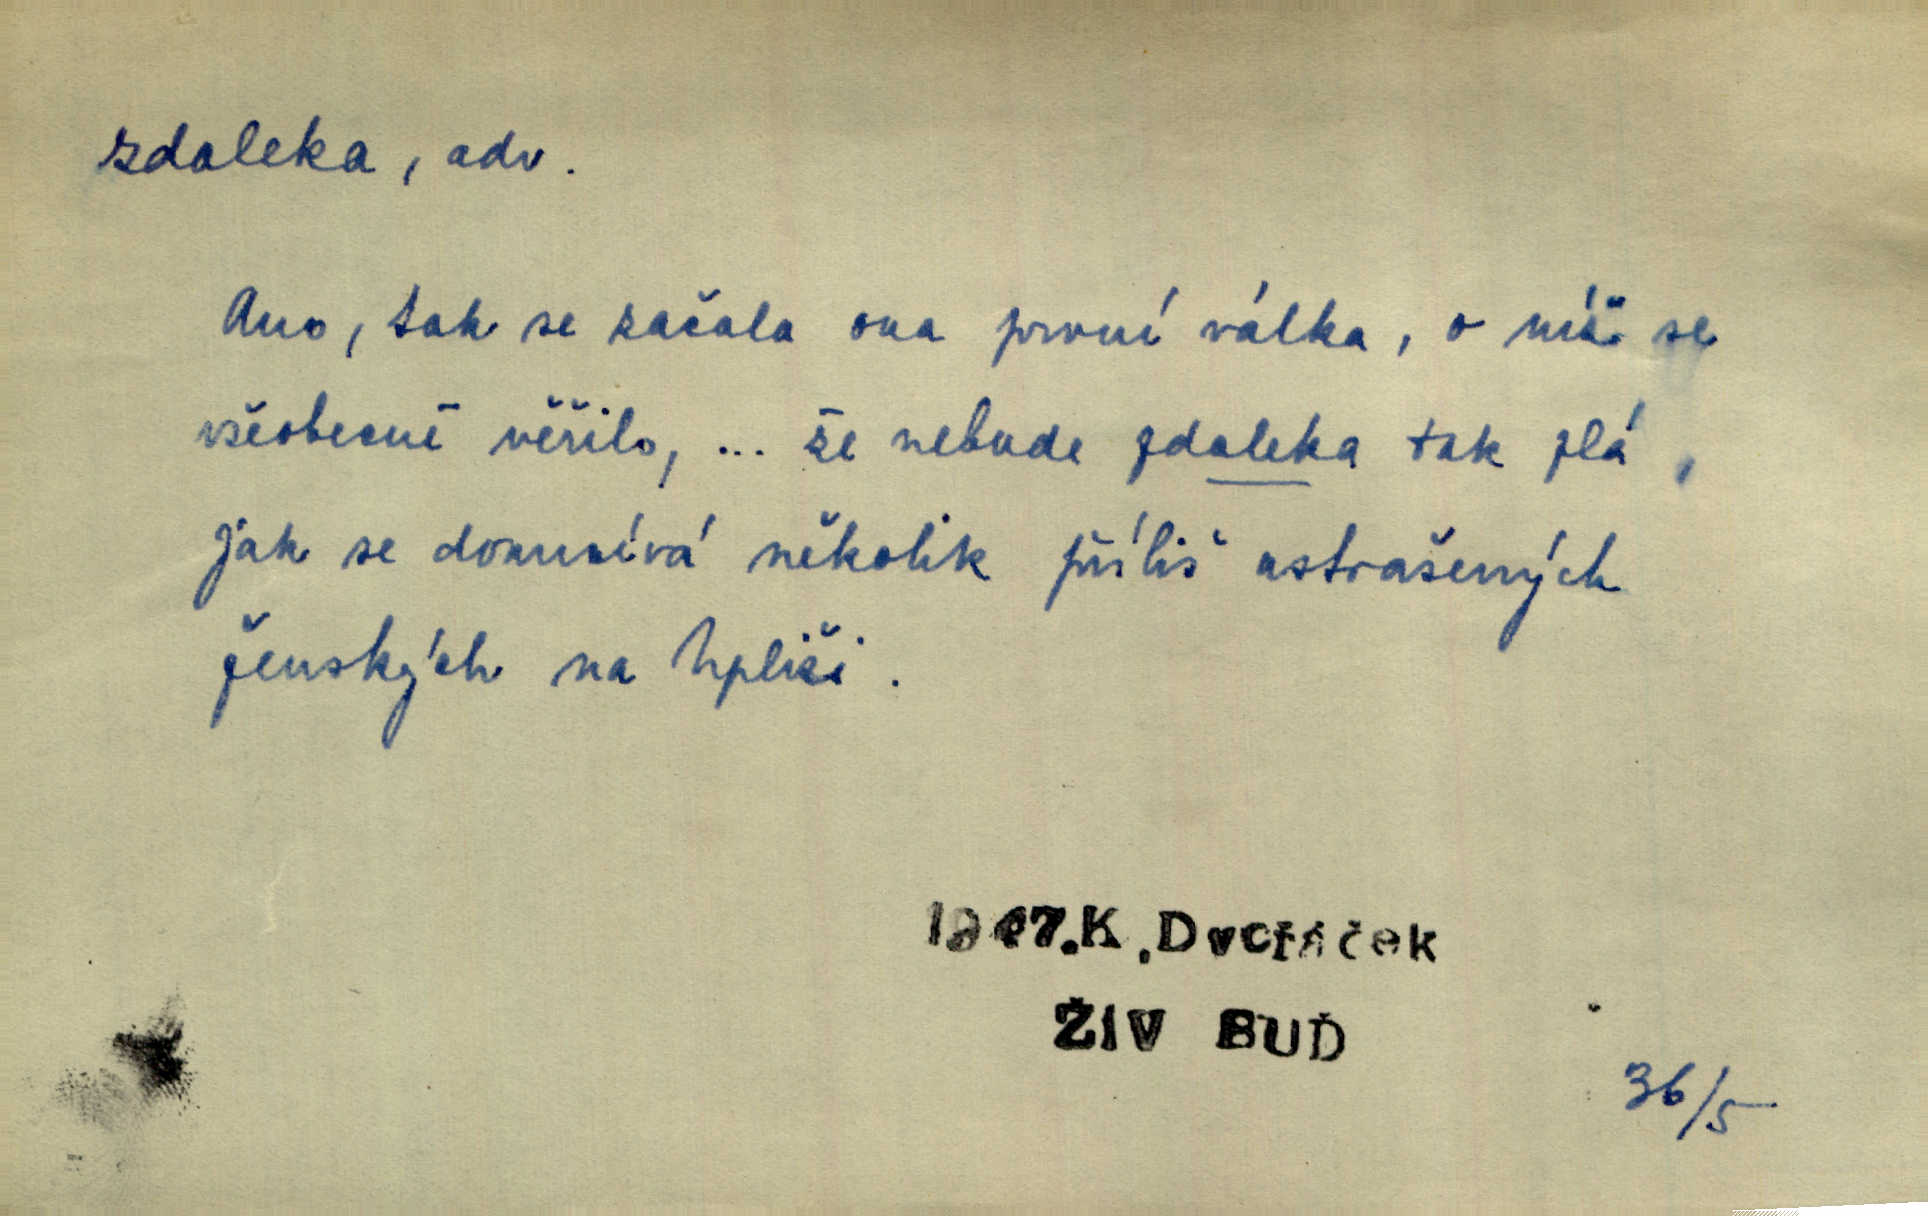 zdaleka, adv.
Ano, tak se začala ona první válka, o níž se
všeobecně věřilo, ... že nebude zdaleka tak zlá,
jak se domnívá několik příliš ustrašených
ženských na
K. Dvořáček
ŽIV BUĎ
36/5